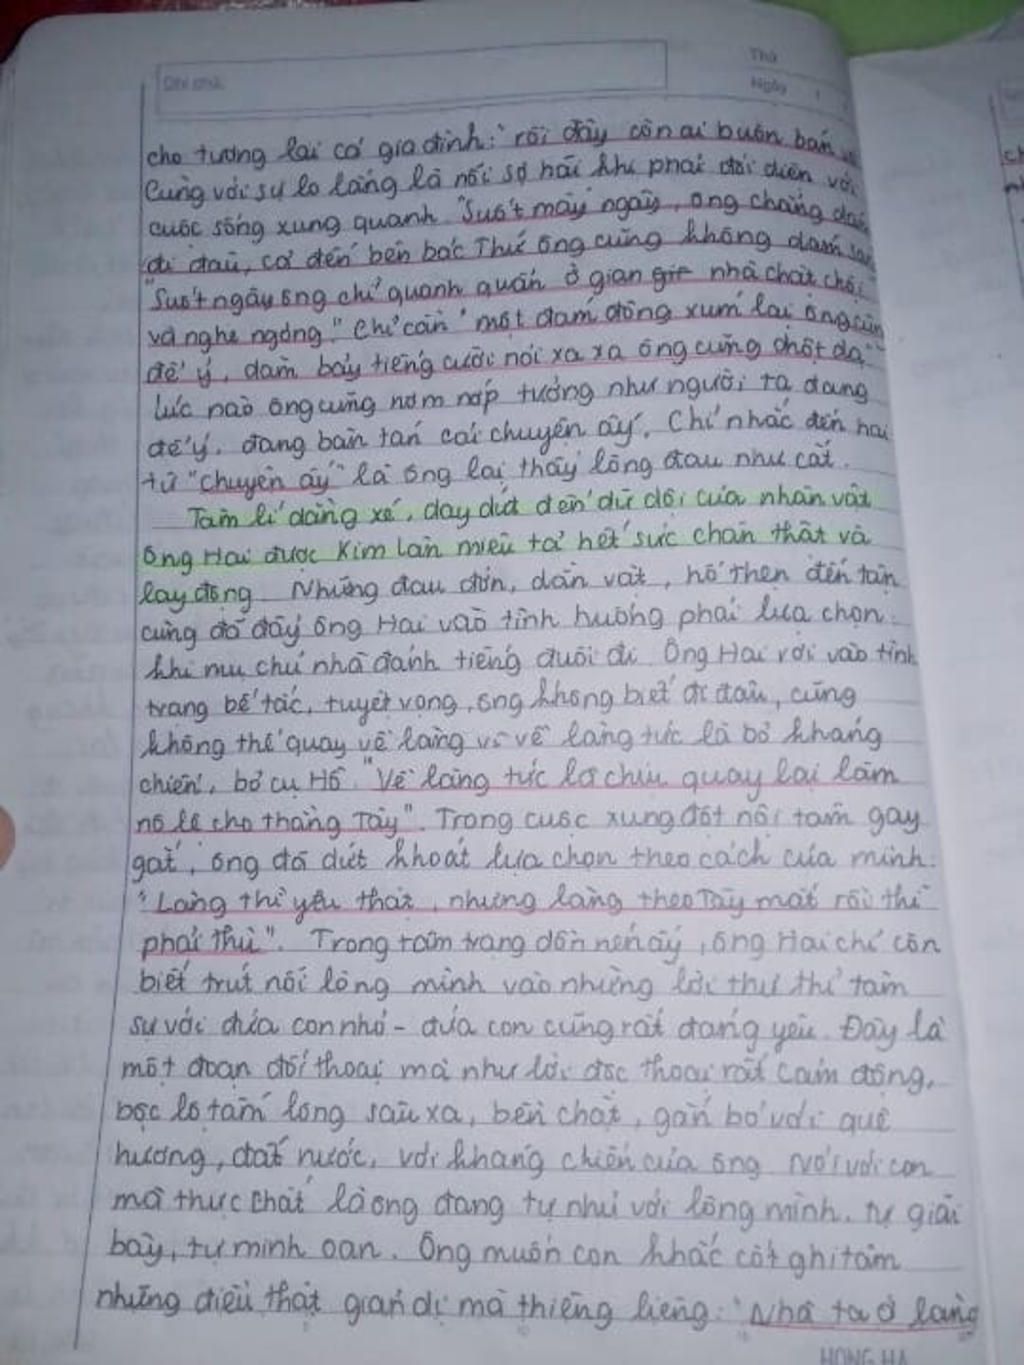 Ghi chú:
Thứ
Ngày
cho tương lai cả gia đình: "rồi đây còn ai buôn bán
Cùng với sự lo lắng là nỗi sợ hãi khi phải đối diện với
cuộc sống xung quanh "Suốt mấy ngày, ông chẳng dám
đi đâu, cả đến bên bác Thứ ông cũng không dám sang
"Suốt ngày ông chỉ quanh quẩn ở gian nhà chật chội
và nghe ngóng" Chỉ cần "một đám đông xúm lại ông cũng
để ý, dăm bảy tiếng cười nói xa xa ông cũng chột dạ"
Lúc nào ông cũng nơm nớp tưởng như người ta đang
để ý, đang bàn tán cái chuyện ấy. Chỉ nhắc đến hai
từ "chuyện ấy" là ông lại thấy lòng đau như cắt.
Tâm lí dằng xé, day dứt đến dữ dội của nhân vật
ông Hai được Kim Lân miêu tả hết sức chân thật và
lay động. Những đau đớn, dằn vặt, hổ thẹn đến tận
cùng đã đẩy ông Hai vào tình huống phải lựa chọn
khi mụ chủ nhà đánh tiếng đuổi đi. Ông Hai rơi vào tình
trạng bế tắc, tuyệt vọng, ông không biết đi đâu, cũng
không thể quay về làng vì về làng tức là bỏ kháng
chiến, bỏ cụ Hồ. "Về làng tức là chịu quay lại làm
nô lệ cho thằng Tây". Trong cuộc xung đột nội tâm gay
gắt, ông đã dứt khoát lựa chọn theo cách của mình:
"Làng thì yêu thật, nhưng làng theo Tây mất rồi thì
phải thù". Trong tâm trạng dồn nén ấy, ông Hai chỉ còn
biết trút nỗi lòng mình vào những lời thủ thỉ tâm
sự với đứa con nhỏ - đứa con cũng rất đáng yêu. Đây là
một đoạn đối thoại mà như lời độc thoại rất cảm động,
bộc lộ tấm lòng sâu xa, bền chặt, gắn bó với quê
hương, đất nước, với kháng chiến của ông. Nói với con
mà thực chất là ông đang tự nhủ với lòng mình, tự giãi
bày, tự minh oan. Ông muốn con khắc cốt ghi tâm
những điều thật giản dị mà thiêng liêng: "Nhà ta ở làng
HONG HA